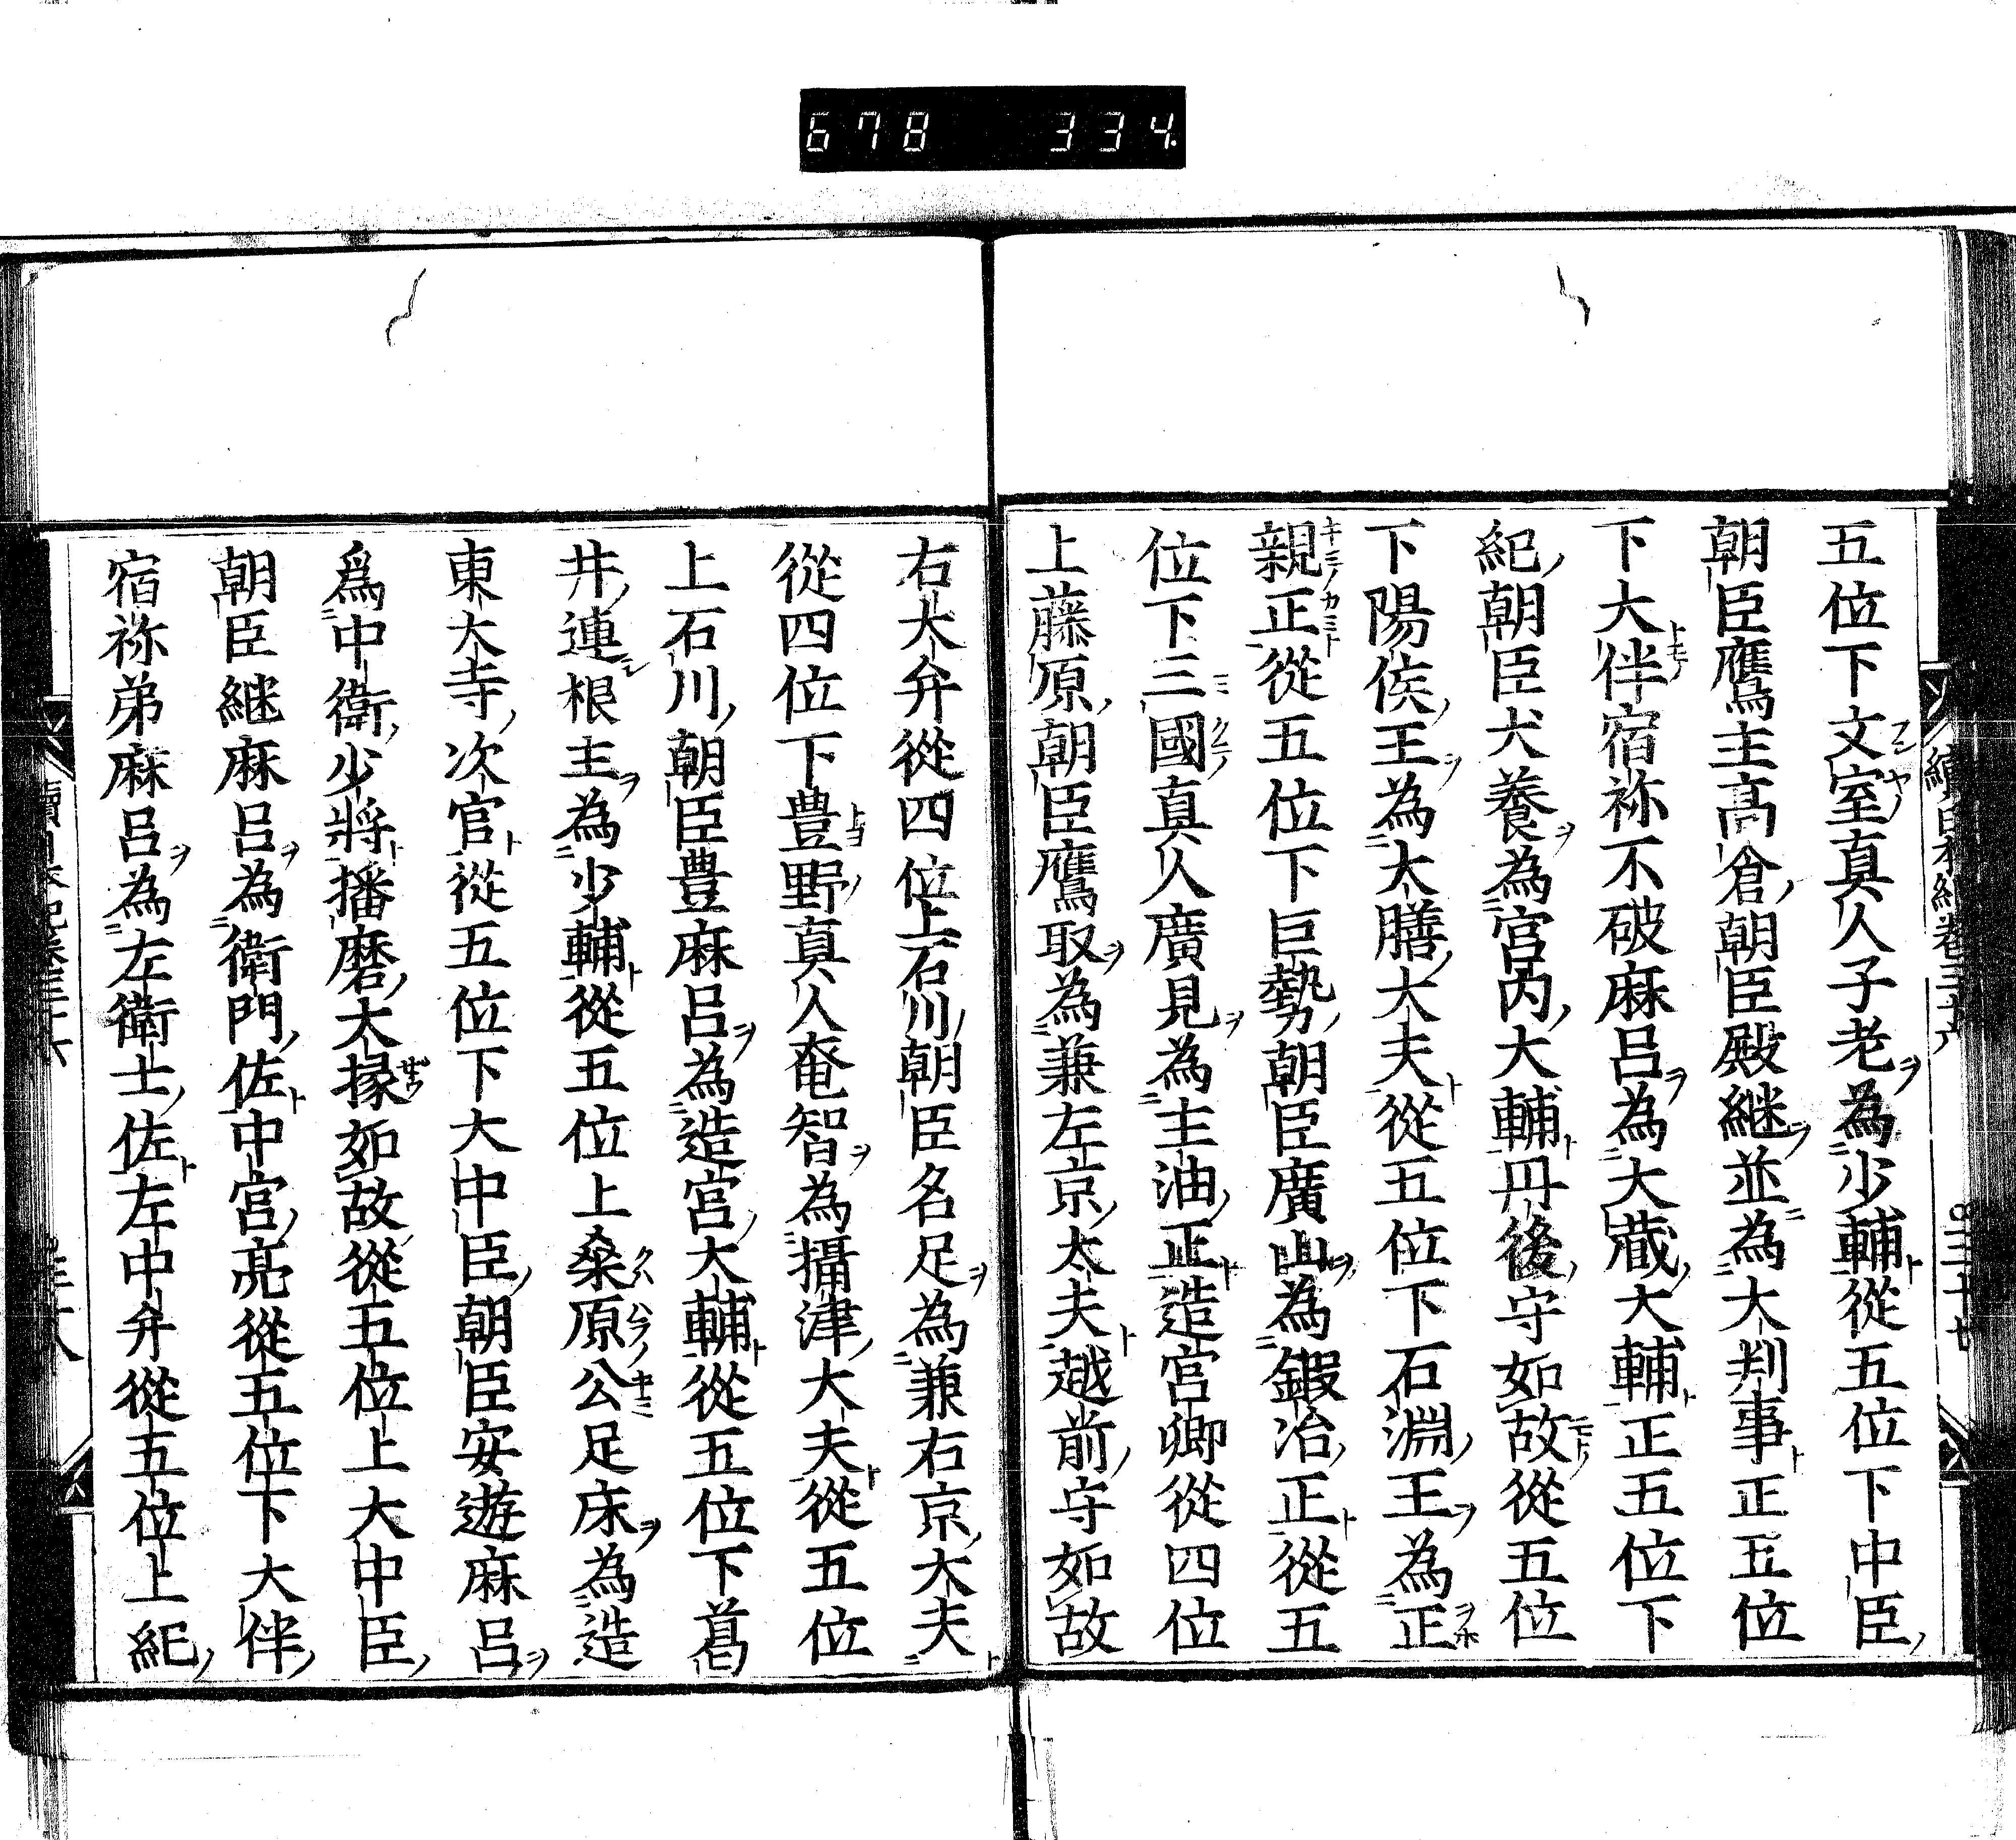 678 334.
續日本紀卷三十六 三十七
五位下文室真人子老為少輔從五位下中臣
朝臣鷹主高倉朝臣殿継並為大判事正五位
下大伴宿祢不破麻呂為大蔵大輔正五位下
紀朝臣犬養為宮内大輔丹後守如故從五位
下陽侯王為大膳大夫從五位下石淵王為正
親正從五位下巨勢朝臣廣山為鍛冶正從五
位下三國真人廣見為主油正造宮卿從四位
上藤原朝臣鷹取為兼左京大夫越前守如故
右大弁從四位上石川朝臣名足為兼右京大夫
從四位下豊野真人奄智為攝津大夫從五位
上石川朝臣豊麻呂為造宮大輔從五位下葛
井連根主為少輔從五位上桒原公足床為造
東大寺次官從五位下大中臣朝臣安遊麻呂
爲中衛少將播磨大掾如故從五位上大中臣
朝臣継麻呂為衛門佐中宮亮從五位下大伴
宿祢弟麻呂為左衛士佐左中弁從五位上紀
續日本紀卷三十六 三十八